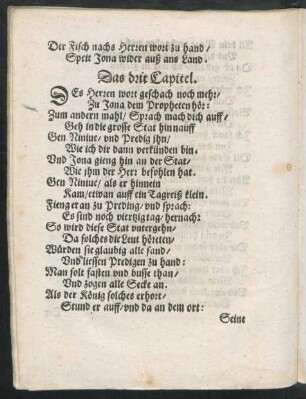 Der Fisch nachs Herren wort zu hand/
Speit Jona wider auß ans Land.
Das drit Capitel.
DEs Herren wort geschach noch mehr/
Zu Jona dem Propheten hör:
Zum andern mahl/ Sprach mach dich auff/
Geh in die grosse Stat hinnauff
Gen Niniue/ vnd Predig jhn/
Wie ich dir dann verkünden bin.
Vnd Jona gieng hin an der Stat/
Wie jhm der Herr befohlen hat.
Gen Niniue/ als er hinein
Kam/ etwan auff ein Tagreiß klein.
Fieng er an zu Preding/ vnd sprach:
Es sind noch viertzig tag/ hernach:
So wird diese Stat vntergehn/
Da solches die Leut höreten/
Würden sie glaubig alle sand/
Vnd liessen Predigen zu hand:
Man solt fasten vnd busse than/
Vnd zogen alle Secke an.
Als der König solches erhort/
Stund er auff/ vnd da an dem ort:
Seine